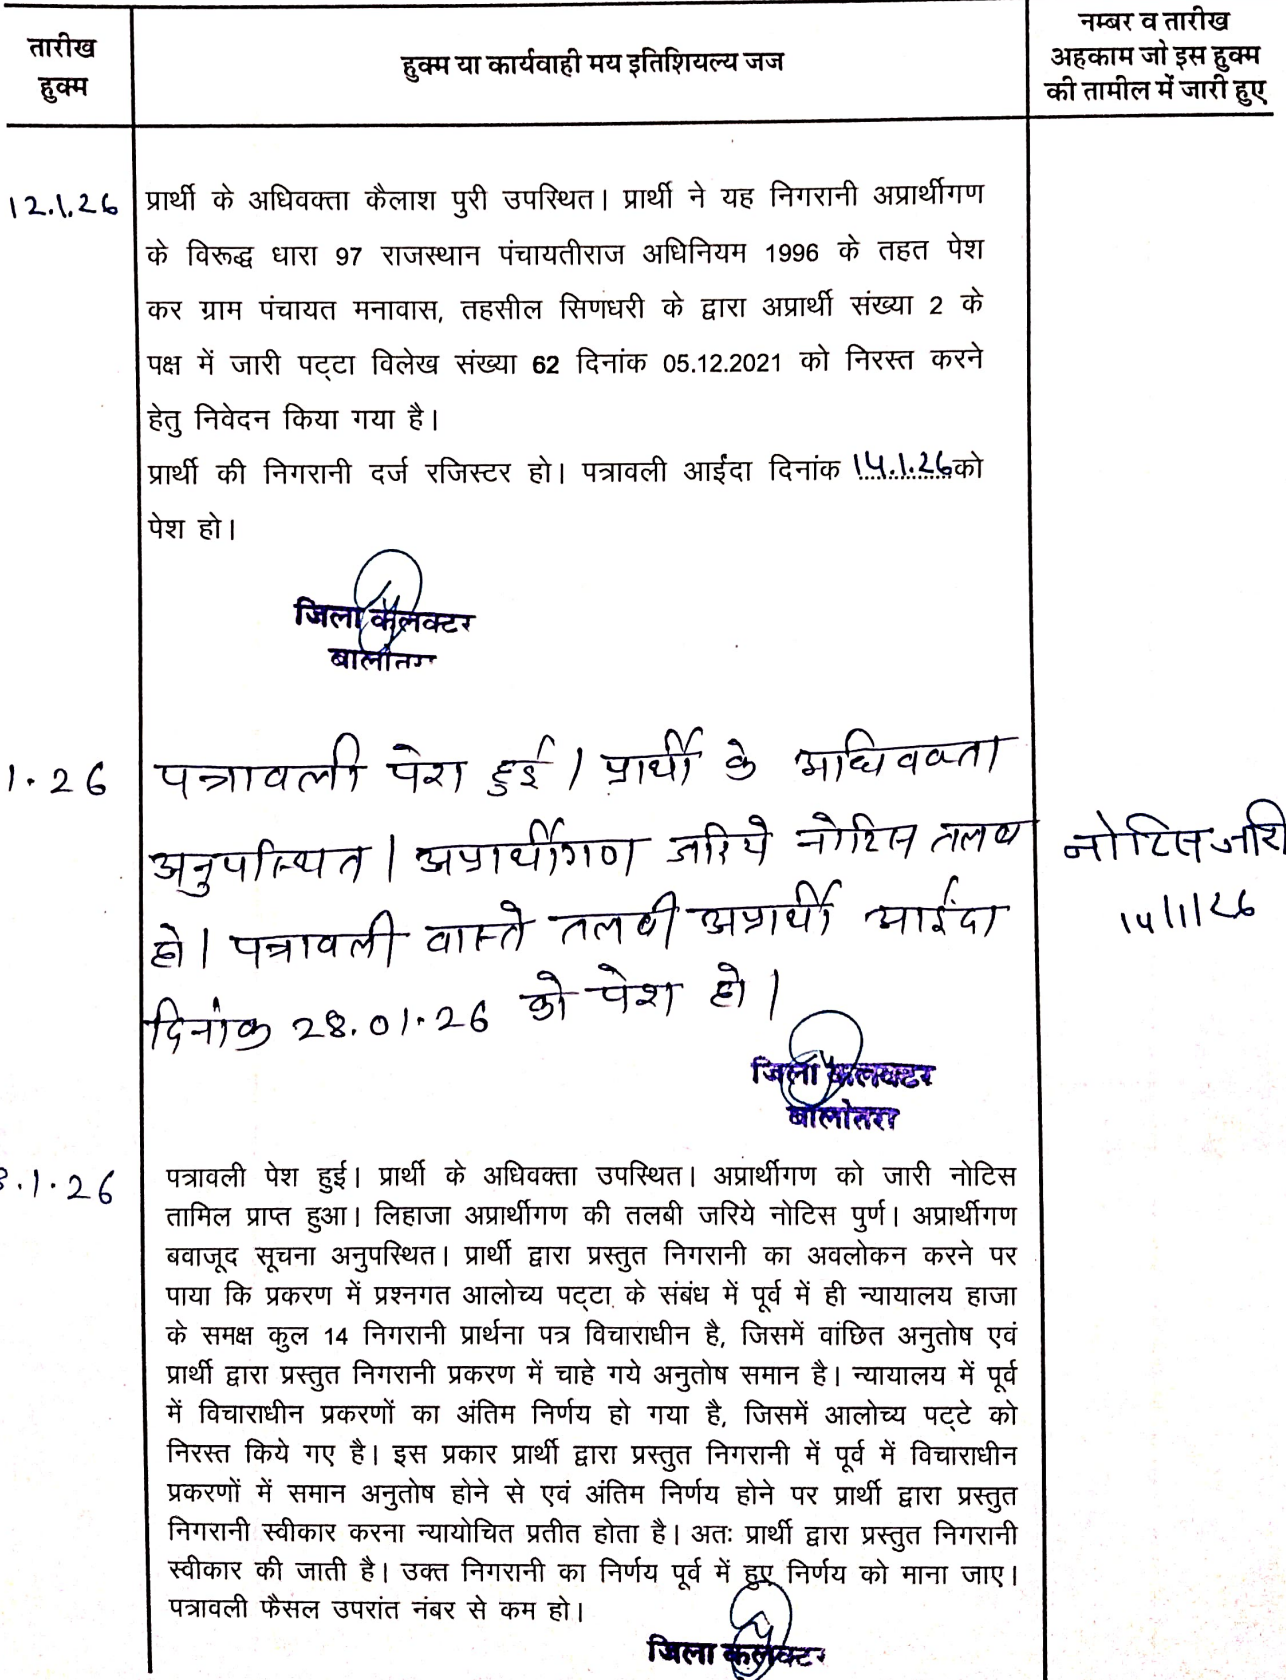 तारीख
हुक्म
हुक्म या कार्यवाही मय इतिशियल्य जज
नम्बर व तारीख
अहकाम जो इस हुक्म
की तामील में जारी हुए
12.1.26
प्रार्थी के अधिवक्ता कैलाश पुरी उपस्थित। प्रार्थी ने यह निगरानी अप्रार्थीगण
के विरूद्ध धारा 97 राजस्थान पंचायतीराज अधिनियम 1996 के तहत पेश
कर ग्राम पंचायत मनावास, तहसील सिणधरी के द्वारा अप्रार्थी संख्या 2 के
पक्ष में जारी पट्टा विलेख संख्या 62 दिनांक 05.12.2021 को निरस्त करने
हेतु निवेदन किया गया है।
प्रार्थी की निगरानी दर्ज रजिस्टर हो। पत्रावली आईंदा दिनांक 14.1.26 को
पेश हो।
जिला कलक्टर
बालोतरा
1.26
पत्रावली पेश हुई। प्रार्थी के अधिवक्ता
अनुपस्थित। अप्रार्थीगण जरिये नोटिस तलब
हो। पत्रावली वास्ते तलबी अप्रार्थी आईंदा
दिनांक 28.01.26 को पेश हो।
नोटिस जारी
14/1/26
जिला कलक्टर
बालोतरा
8.1.26
पत्रावली पेश हुई। प्रार्थी के अधिवक्ता उपस्थित। अप्रार्थीगण को जारी नोटिस
तामिल प्राप्त हुआ। लिहाजा अप्रार्थीगण की तलबी जरिये नोटिस पुर्ण। अप्रार्थीगण
बवाजूद सूचना अनुपस्थित। प्रार्थी द्वारा प्रस्तुत निगरानी का अवलोकन करने पर
पाया कि प्रकरण में प्रश्नगत आलोच्य पट्टा के संबंध में पूर्व में ही न्यायालय हाजा
के समक्ष कुल 14 निगरानी प्रार्थना पत्र विचाराधीन है, जिसमें वांछित अनुतोष एवं
प्रार्थी द्वारा प्रस्तुत निगरानी प्रकरण में चाहे गये अनुतोष समान है। न्यायालय में पूर्व
में विचाराधीन प्रकरणों का अंतिम निर्णय हो गया है, जिसमें आलोच्य पट्टे को
निरस्त किये गए है। इस प्रकार प्रार्थी द्वारा प्रस्तुत निगरानी में पूर्व में विचाराधीन
प्रकरणों में समान अनुतोष होने से एवं अंतिम निर्णय होने पर प्रार्थी द्वारा प्रस्तुत
निगरानी स्वीकार करना न्यायोचित प्रतीत होता है। अतः प्रार्थी द्वारा प्रस्तुत निगरानी
स्वीकार की जाती है। उक्त निगरानी का निर्णय पूर्व में हुए निर्णय को माना जाए।
पत्रावली फैसल उपरांत नंबर से कम हो।
जिला कलक्टर